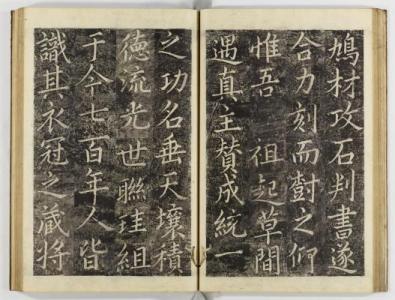 鳩材攻石判書遂
合力刻而尌之仰
惟吾 祖起草間
遇真主賛成統一
之功名垂天壤積
德流光世聯珪組
于今七百年人皆
識其衣冠之藏將